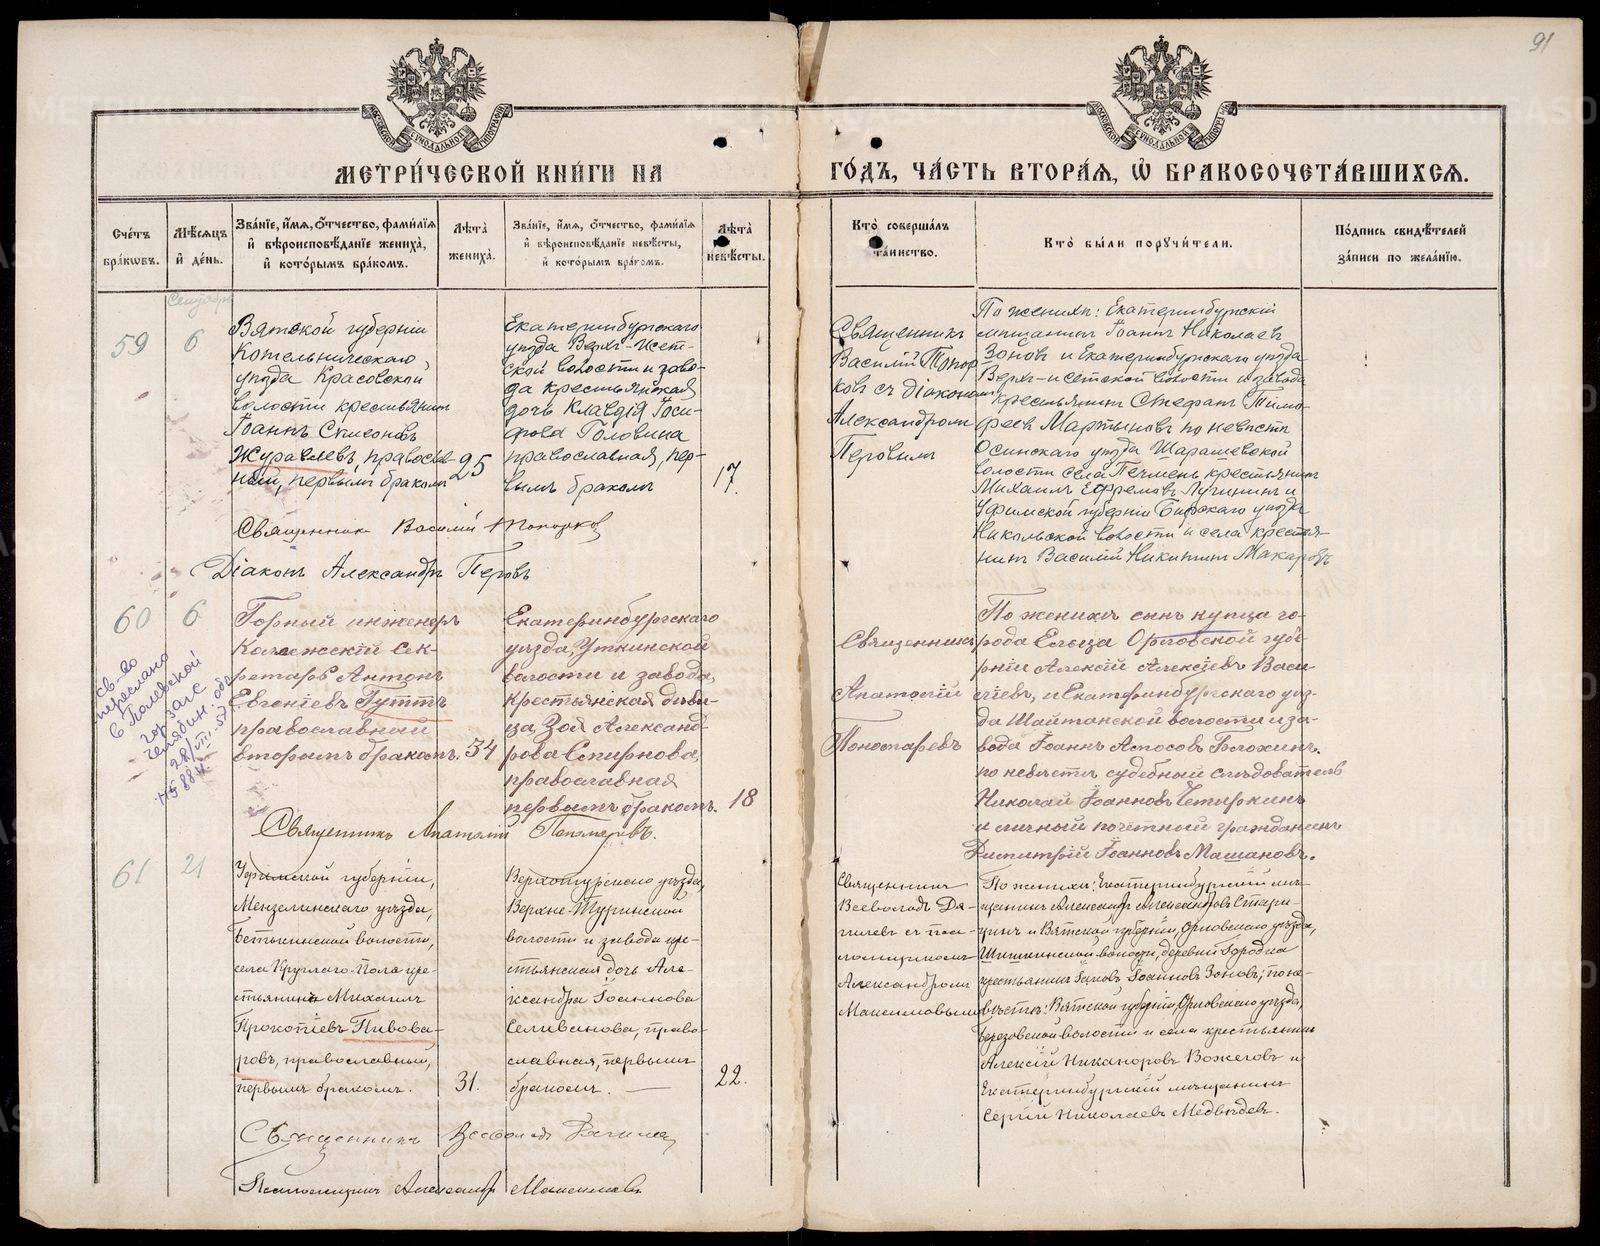 91
МЕТРИ́ЧЕСКОЙ КНИ́ГИ НА
ГО́ДЪ, ЧА́СТЬ ВТОРА́Я, Ѡ БРАКОСОЧЕТА́ВШИХСЯ.
Сче́тъ бра́кѡвъ.
Мѣ́сяцъ й де́нь.
Зва́нїе, и́мя, о́тчество, фами́лїя й вѣроисповѣ́данїе жениха̀, й кото́рымъ бра́комъ.
Лѣ́та жениха̀.
Зва́нїе, и́мя, о́тчество, фами́лїя й вѣроисповѣ́данїе невѣ́сты, й кото́рымъ бра́комъ.
Лѣ́та невѣ́сты.
Кто̀ соверша́лъ та́инство.
Кто̀ бы́ли поручи́тели.
По́дпись свидѣ́телей за́писи по жела́нїю.
Сентябрь
59
6
Вятской губернiи
Котельническаго
уѣзда Красовской
волости крестьянинъ
Iоаннъ Симеоновъ
Журавлевъ, православ-
ный, первымъ бракомъ
25
Екатеринбургскаго
уѣзда Верхъ-Исет-
ской волости и заво-
да крестьянская
дочь Клавдiя Iоси-
фова Головина
православная, пер-
вымъ бракомъ
17.
Священникъ
Василiй Топор
ковъ съ дiакономъ
Александромъ
Перовымъ
По женихѣ: Екатеринбургскiй
мѣщанинъ Iоаннъ Николаевъ
Зоновъ и Екатеринбургскаго уѣзда
Верхъ-исетской волости и завода
крестьянинъ Стефанъ Тимо-
феевъ Мартыновъ по невѣстѣ
Осинскаго уѣзда Шарашевской
волости села Печмень крестьянинъ
Михаилъ Ефремовъ Лучининъ и
Уфимской губернiи Бирскаго уѣзда
Никольской волости и села крестья-
нинъ Василiй Никитинъ Макаровъ
Священникъ Василiй Топорковъ
Дiаконъ Александръ Перовъ
60
6
Горный инженеръ
Коллежскiй Сек-
ретарь Антонъ
Евгенiевъ Гуттъ
православный
вторымъ бракомъ.
34
Екатеринбургскаго
уѣзда, Уткинской
волости и завода,
крестьянская дѣви-
ца Зоя Александ-
рова Смирнова,
православная
первымъ бракомъ.
18
Священникъ
Анатолiй
Пономаревъ
По женихѣ сынъ купца го-
рода Ельца Орловской губе-
рнiи Алексiй Алексiевъ Васи
лiевъ, и Екатеринбургскаго уѣз-
да Шайтанской волости и за-
вода Iоаннъ Амосовъ Блохинъ.
по невѣстѣ судебный слѣдователь
Николай Iоанновъ Четыркинъ
и личный почетный гражданинъ
Димитрiй Iоанновъ Машановъ.
св-во
переслано
в Полевской
горзагс
челябин. обл
28/VIII-57
Священникъ Анатолiй Пономаревъ.
61
21
Уфимской губернiи,
Мензелинскаго уѣзда,
села Круглаго-Поля кре-
стьянинъ Михаилъ
Прокопiевъ Пивова-
ровъ, православный,
первымъ бракомъ.
31.
Верхотурскаго уѣзда,
Верхне-Туринской
волости и завода кре-
стьянская дочь Але-
ксандра Iоаннова
Селиванова, право-
славная, первымъ
бракомъ. —
22.
Священникъ
Всеволодъ Да-
гилевъ съ пса-
ломщикомъ
Александромъ
Максимовымъ
По женихѣ: Екатеринбургскiй мѣ-
щанинъ Александръ Александровъ Стари-
цинъ и Вятской губернiи, Орловскаго уѣзда,
Шишкинской волости, деревни Городча
крестьянинъ Iаковъ Iоанновъ Зоновъ; по не-
вѣстѣ: Вятской губернiи, Орловскаго уѣзда,
Березовской волости и села крестьянинъ
Алексiй Никаноровъ Вожеговъ и
Екатеринбургскiй мѣщанинъ
Сергiй Николаевъ Медвѣдевъ.
Священникъ Всеволодъ Дагилевъ
Псаломщикъ Александръ Максимовъ